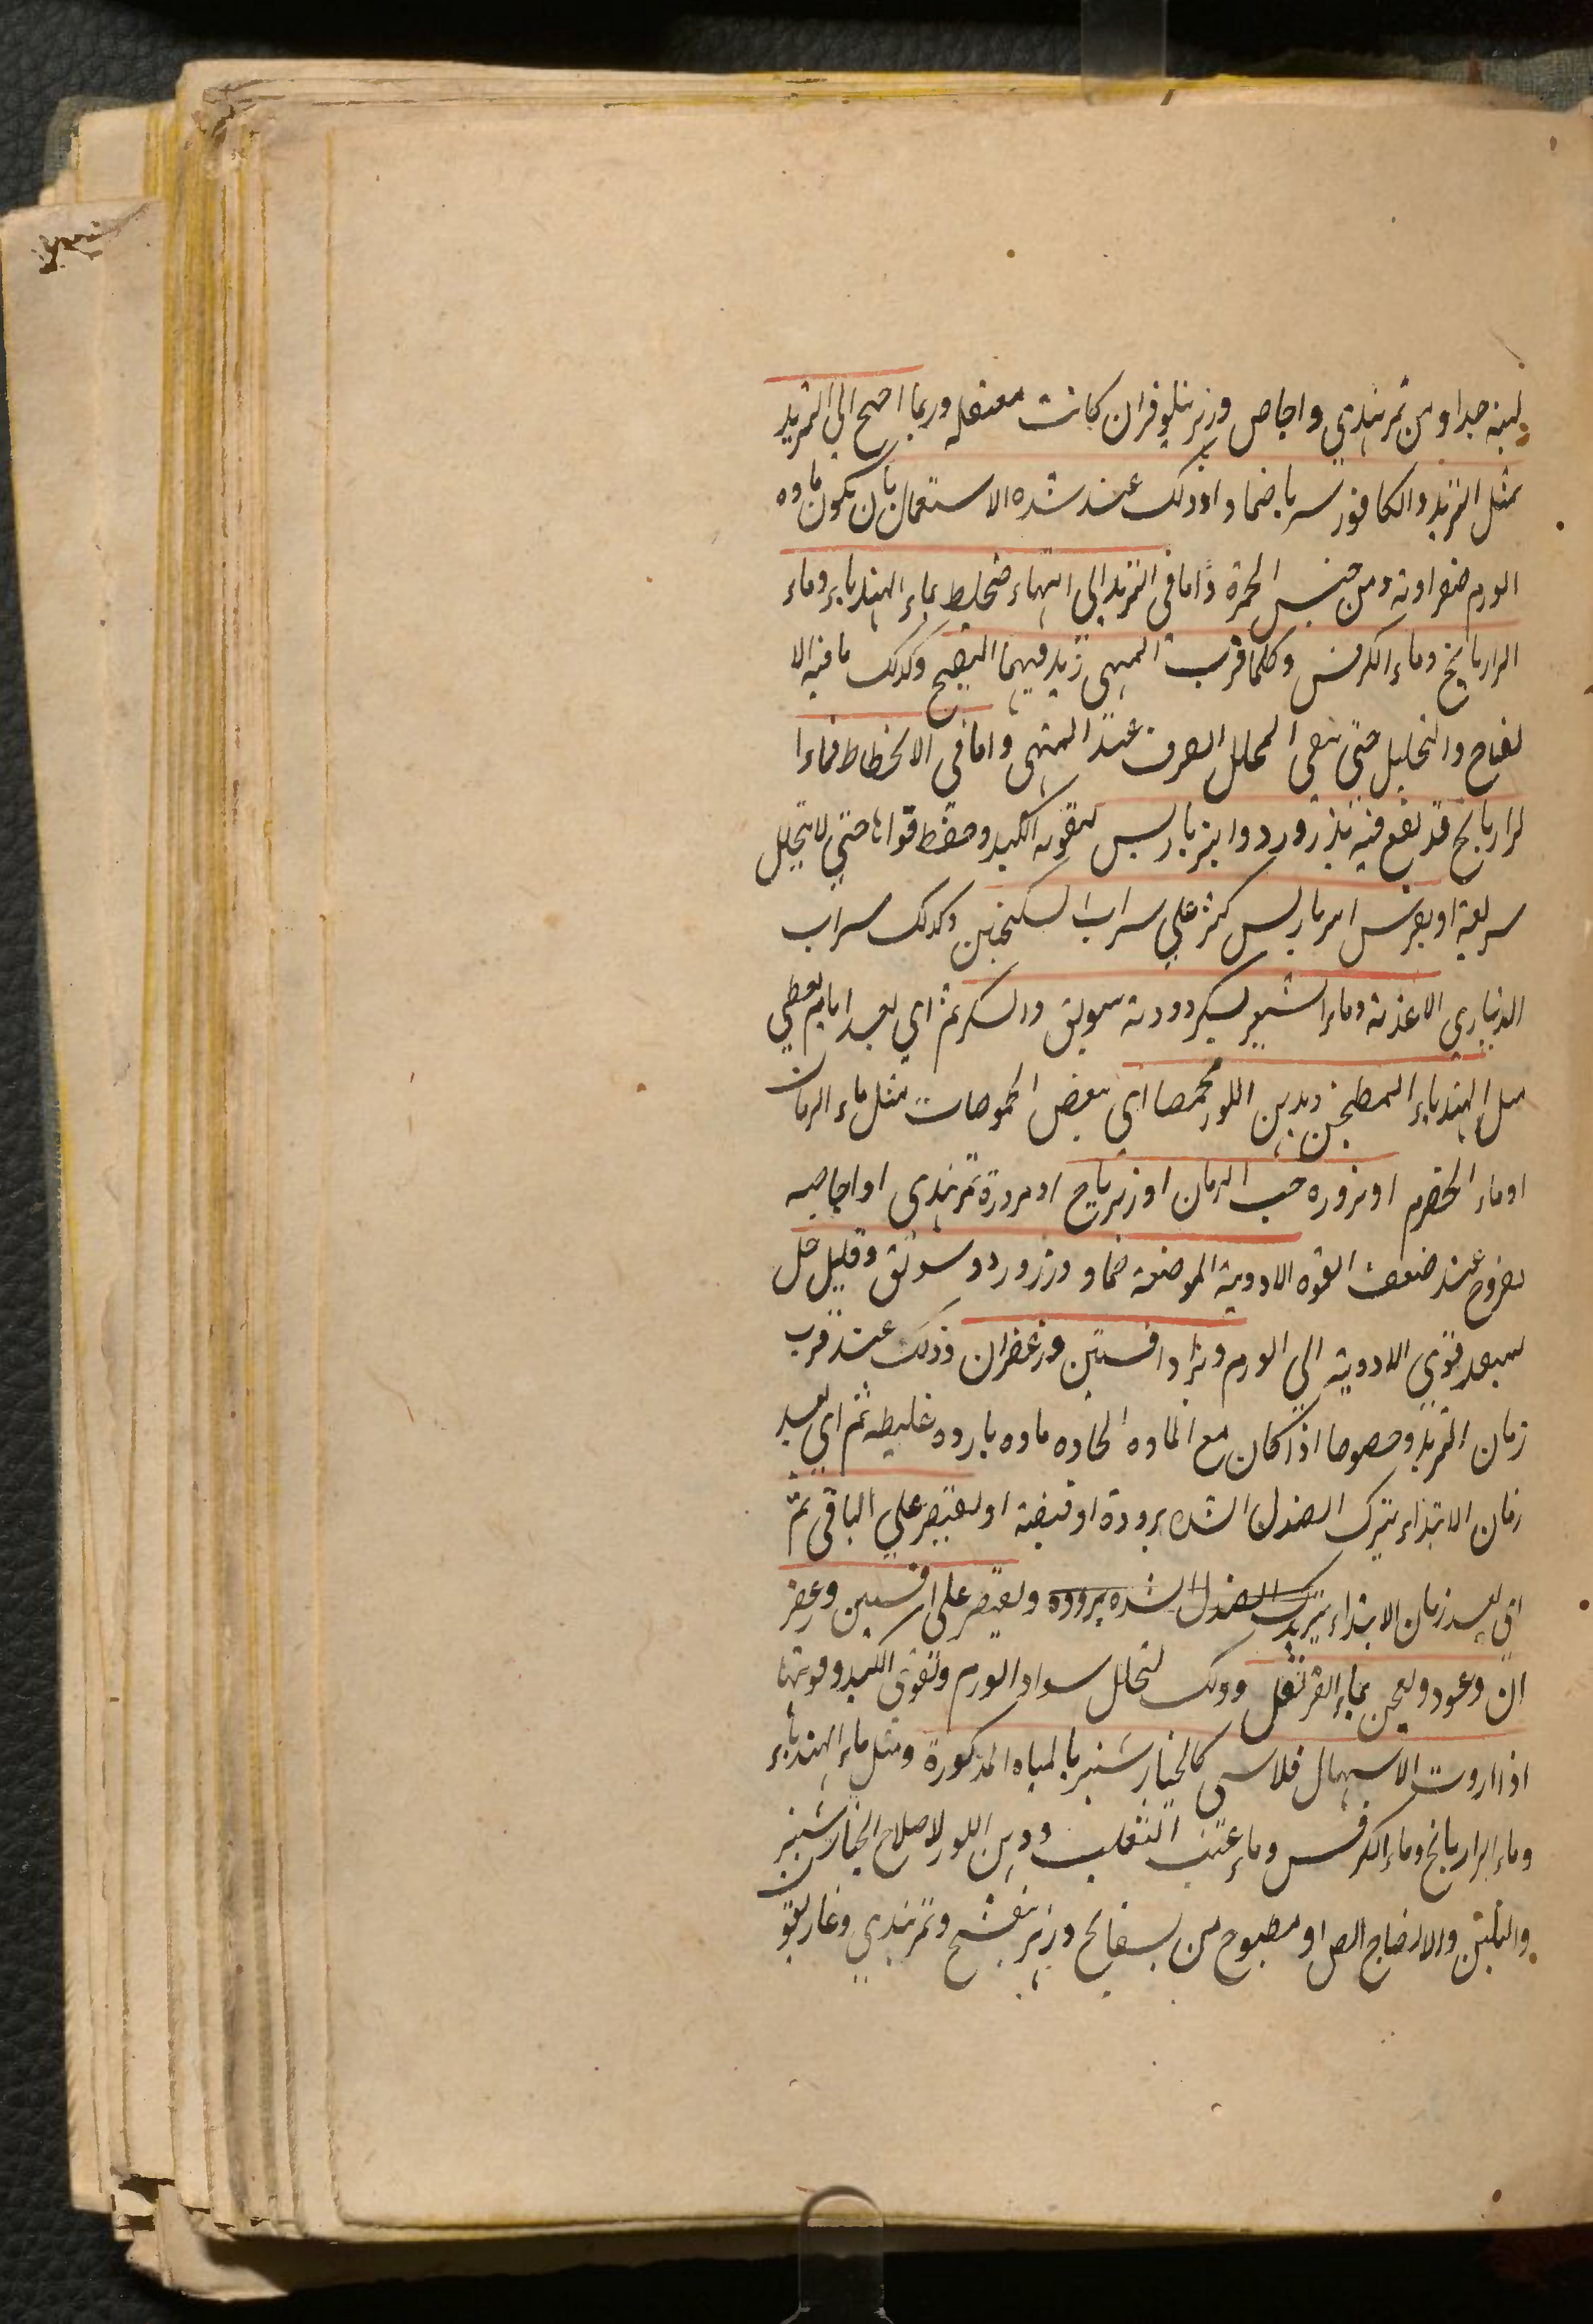 لينه جدا ومن تمرهندي واجاص وزهر نيلوفر ان كانت معتقله وربما احيح الي التبريد
بمثل التبريد والكافور سربا ضمادا وذلك عند شده الاستعمال بان يكون ماده
الورم صفراويه ومن جنس الحمرة واما في التزيد الي انتهاء فيخلط بماء الهندباء وماء
الرازيانج وماء الكرفس وكلما قرب المنتهي زيد فيهما النضج وكذلك ما فيه الا
نضاج والتحليل حتي يبقي المحلل الصرف عند المنتهي واما في الانحطاط فماء ا
لرازيانج قد نقع فيه بذر ورد وانبرباريس لتقويه الكبد وحفظ قواها حتي لا تتحلل
سريعة او بقرص امبرباريس كثر علي سراب السكنجبين وكذلك سراب
الديناري الاغذية وماء الشعير بسكر دودة سويق والسكر ثم اي بعد ايام يعطي
مثل الهندباء المطجن بدهن اللوز محمصا اي ببعض الحموضات مثل ماء الرمان
او ماء الحصرم او مزوره حب الرمان او زيرباج او مزورة تمرهندي او اجاصيه
بفروج عند ضعف القوه الادوية الموضعيه ضماد وزر ورد وسويق وقليل خل
ليبعد قوي الادوية الي الورم ويزاد افسنتين وزعفران وذلك عند قرب
زمان التزيد وخصوصا اذا كان مع الماده الحاده ماده بارده غليظه ثم اي بعد
زمان الابتداء يترك الصندل الشده بروده او قبضه او يقتصر علي الباقي ثم
اي بعد زمان الابتداء يترك الصندل الشده بروده ويقتصر علي افسنتين وزعفر
ان وعود ويعجن بماء القرنفل وذلك لتحلل سواد الورم وتقوي الكبد وقوتها
اذا اردت الاسهال فلاسي كالخيار شنبر بالمياه المذكورة ومثل ماء الهندباء
وماء الرازيانج وماء الكرفس وماء عنب الثعلب ودهن اللوز لاصلاح الخيار شنبر
والتليين والانضاج الص او مطبوخ من بسفايج وزهر بنفشج وتمرهندي وغاريقو